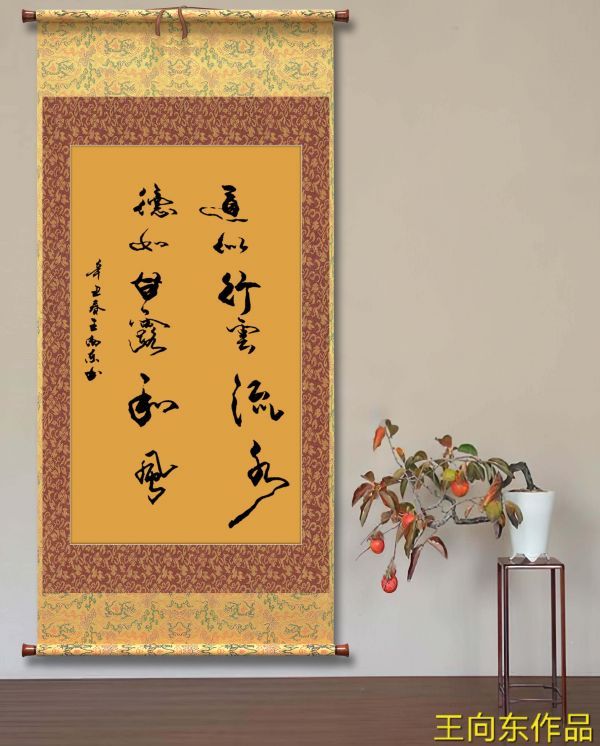 道似行雲流水
德如甘露和風
辛丑春王向东书
王向东作品